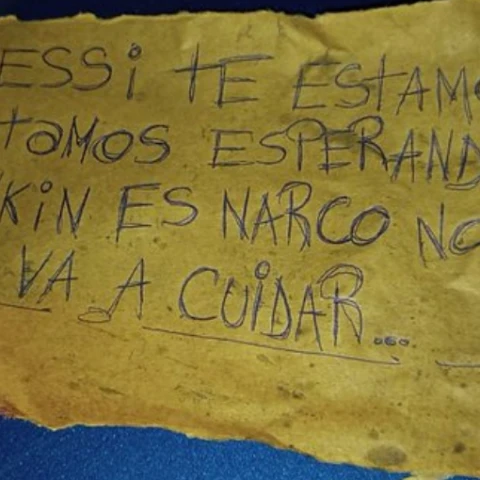 ESSi tE EStAM
tamos ESPERAND
KiN ES NARCO NO
VA A CUiDAR...